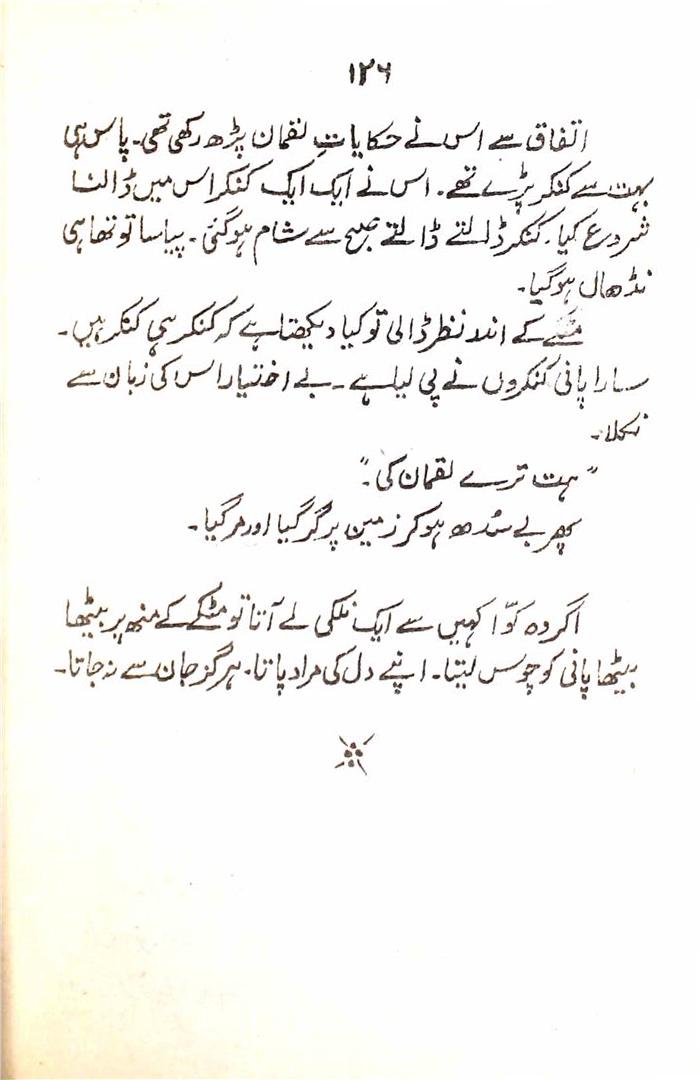 ۱۲۶
اتفاق سے اس نے حکایاتِ لقمان پڑھ رکھی تھی۔ پاس ہی
بہت سے کنکر پڑے تھے۔ اس نے ایک ایک کنکر اس میں ڈالنا
شروع کیا۔ کنکر ڈالتے ڈالتے صبح سے شام ہوگئی۔ پیاسا تو تھا ہی
نڈھال ہوگیا۔
مٹکے کے اندر نظر ڈالی تو کیا دیکھتا ہے کہ کنکر ہی کنکر ہیں۔
سارا پانی کنکروں نے پی لیا ہے۔ بے اختیار اس کی زبان سے
نکلا۔
"ہت ترے لقمان کی۔"
پھر بے سُدھ ہوکر زمین پر گر گیا اور مرگیا۔
اگر وہ کوّا کہیں سے ایک نلکی لے آتا تو مٹکے کے منھ پر بیٹھا
بیٹھا پانی کو چوس لیتا۔ اپنے دل کی مراد پاتا۔ ہرگز جان سے نہ جاتا۔